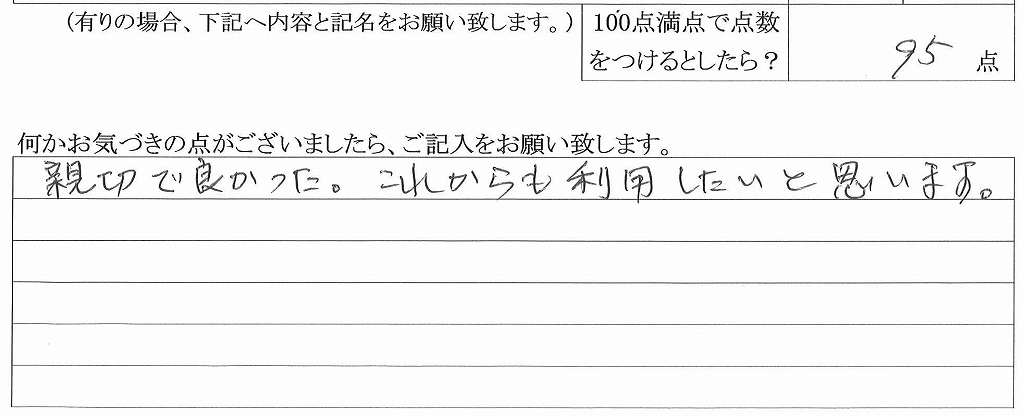 (有りの場合、下記へ内容と記名をお願い致します。)
100点満点で点数
をつけるとしたら？
95 点
何かお気づきの点がございましたら、ご記入をお願い致します。
親切で良かった。これからも利用したいと思います。